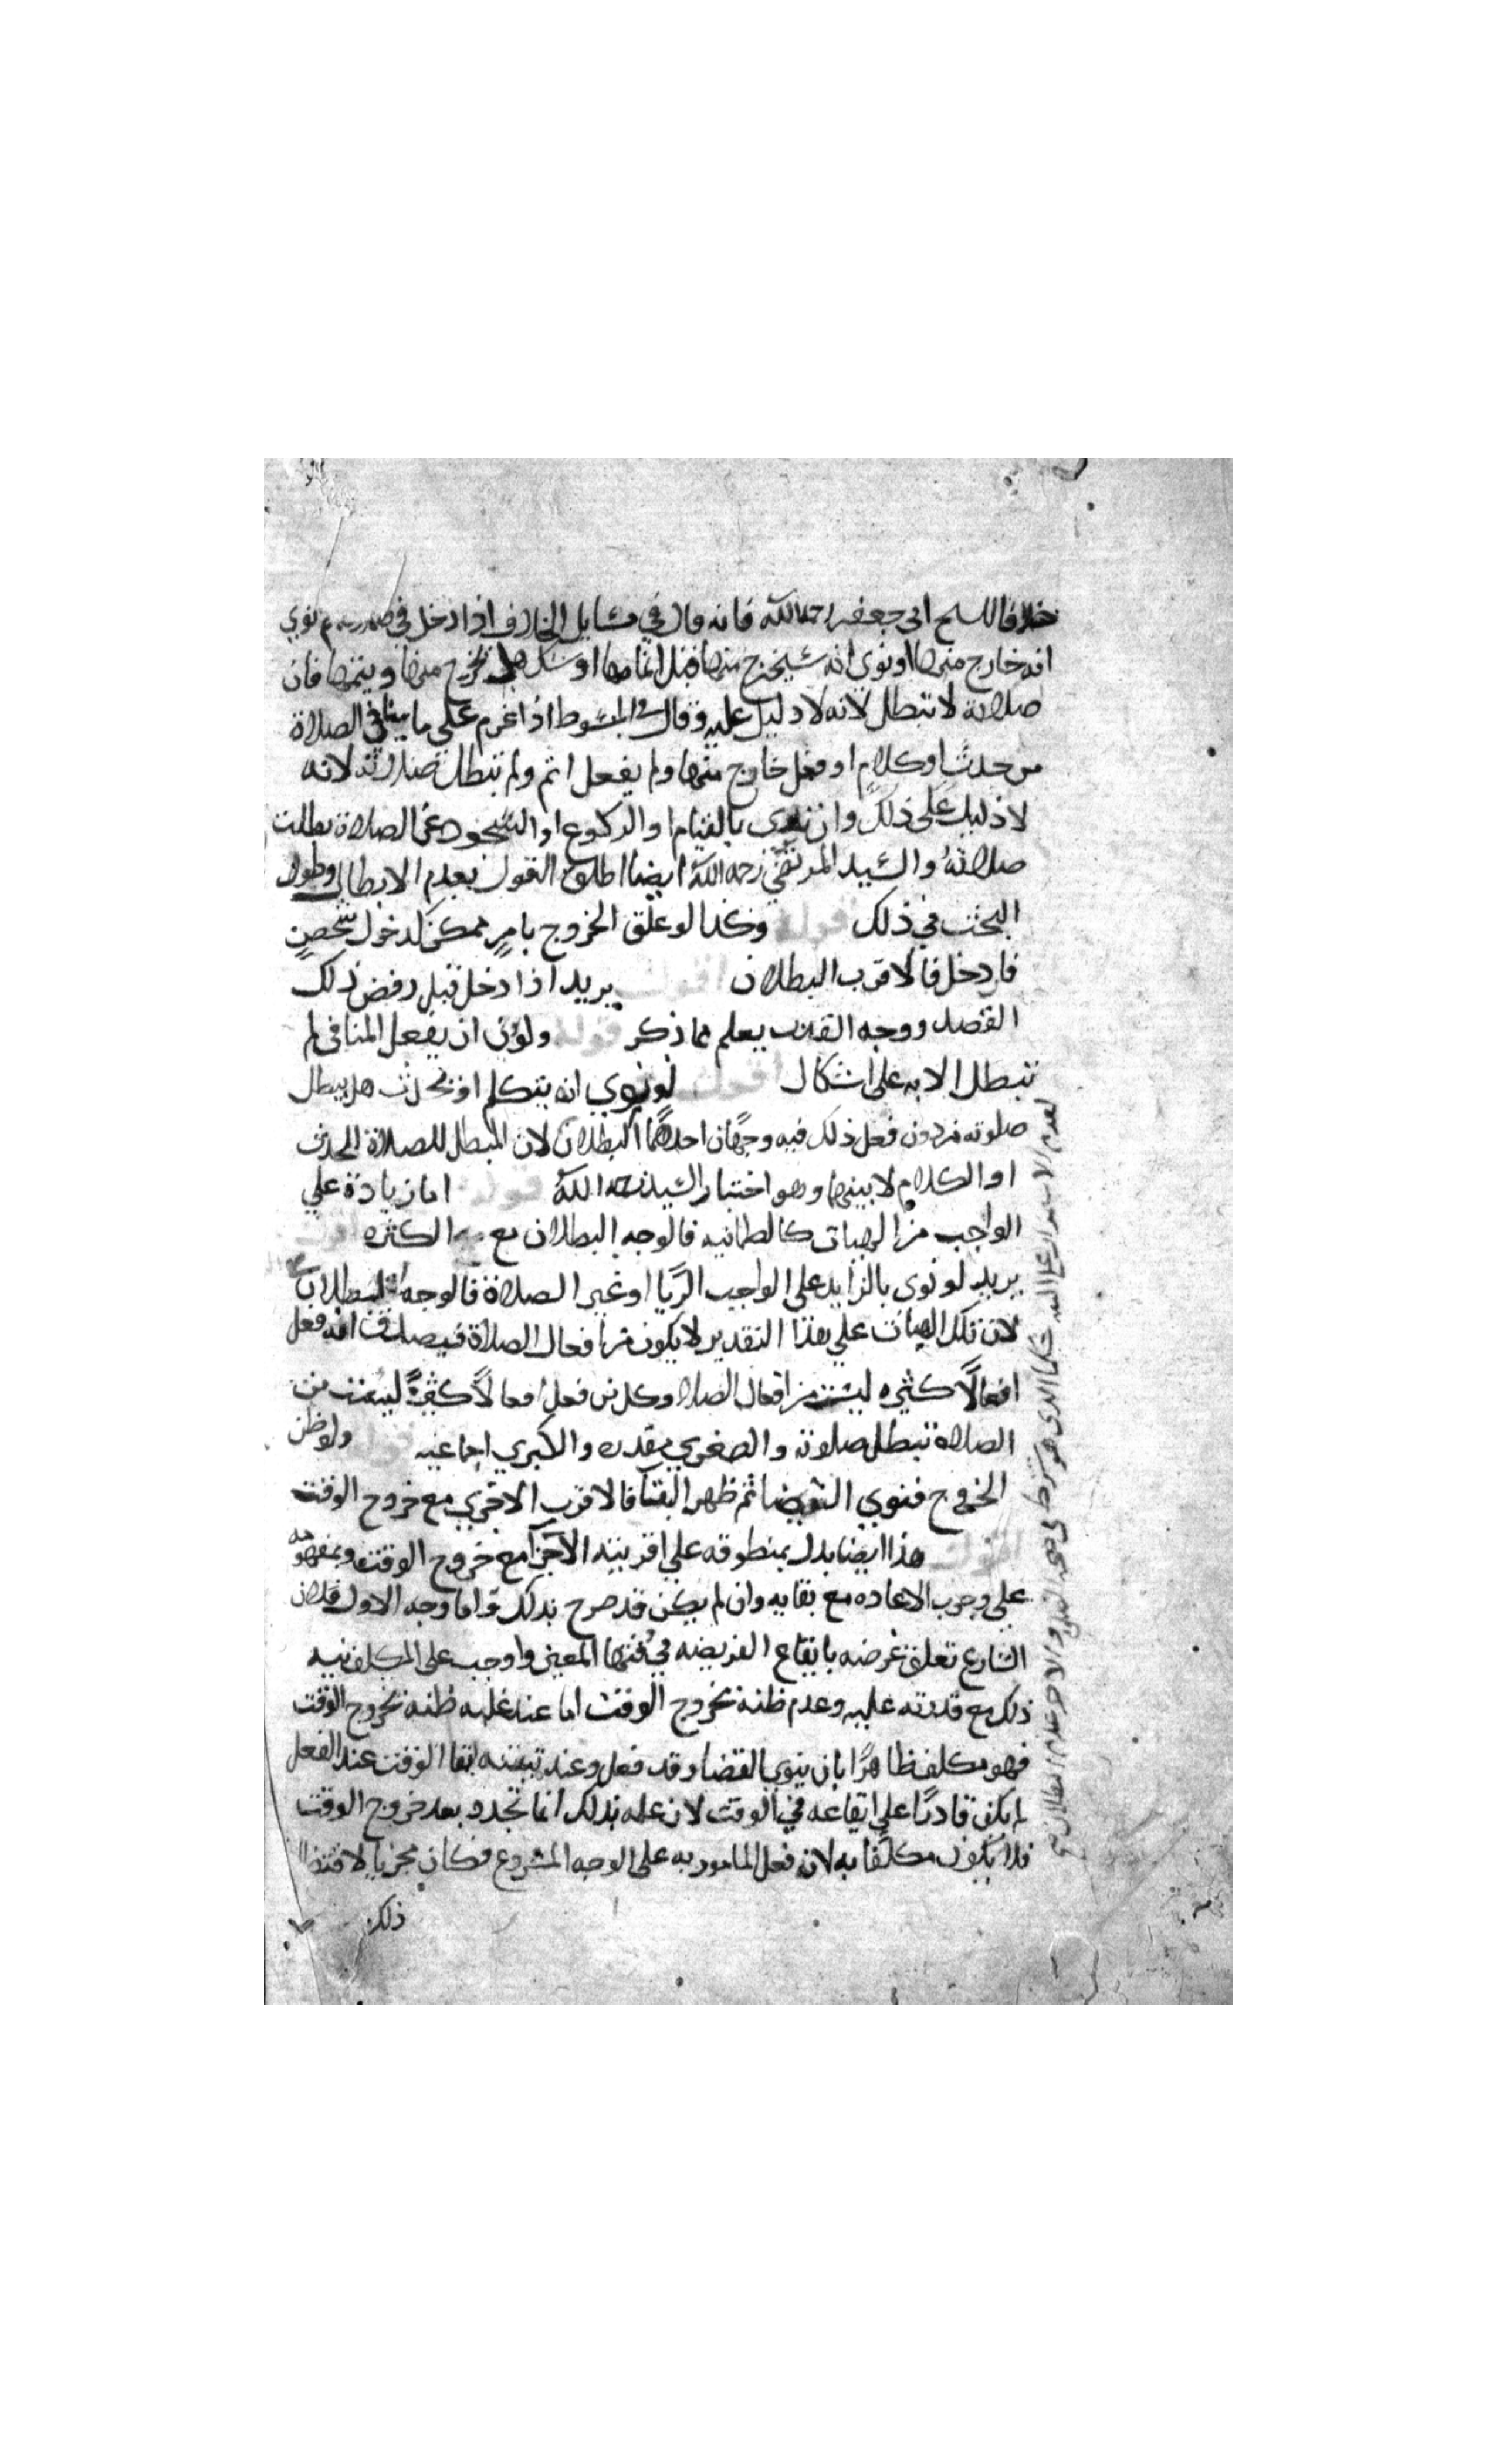 خلافا للشيخ ابي جعفر رحمه الله فانه قال في مسايل الخلاف اذا دخل في صلوته ثم نوي
انه خارج منها او نوى انه سيخرج منها قبل اتمامها او شك هل يخرج منها ويتمها فان
صلاته لا تبطل لانه لا دليل عليه وقال في المبسوط اذا عزم على ما ينافي الصلاة
من حدث او كلام او فعل خارج منها ولم يفعل اثم ولم تبطل صلاته لانه
لا دليل على ذلك وان نوى بالقيام او الركوع او السجود غير الصلاة بطلت
صلاته والسيد المرتضي رحمه الله ايضا اطلق القول بعدم الابطال وطول
البحث في ذلك قوله وكذا لو علق الخروج بامرٍ ممكن كدخول شخصٍ
فان دخل فالاقرب البطلان اقول يريد اذا دخل قبل رفض ذلك
القصد ووجه القرب يعلم مما ذكر قوله ولو نوى ان يفعل المنافى لم
تبطل الا به على اشكال اقول لو نوي انه يتكلم او يحدث هل يبطل
صلوته من دون فعل ذلك فيه وجهان احدهما البطلان لان المبطل للصلاة الحدث
او الكلام لا بينهما وهو اختيار السيد رحمه الله قوله اما زيادة علي
الواجب من الهيات كالطمانيه فالوجه البطلان مع الكثره اقول
يريد لو نوى بالزايد على الواجب الريا او غير الصلاة فالوجه البطلان
لان تلك الهيات علي هذا التقدير لا يكون من افعال الصلاة فيصدق انه فعل
افعالًا كثيره ليست من افعال الصلاة وكل من فعل افعالًا كثيرةً ليست من
الصلاة تبطل صلوته والصغري مقدره والكبري اجماعيه قوله ولو ظن
الخروج فنوي القضا ثم ظهر البقا فالاقرب الاجزي مع خروج الوقت
اقول هذا ايضا يدل بمنطوقه علي اقربية الاجزآ مع خروج الوقت وبمفهومه
علي وجوب الاعاده مع بقايه وان لم يكن قد صرح بذلك واما وجه الاول فلان
الشارع تعلق غرضه بايقاع الفريضه في وقتها المعين واوجب على المكلف نيه
ذلك مع قدرته عليه وعدم ظنه بخروج الوقت اما عند غلبه ظنه بخروج الوقت
فهو مكلف ظاهرًا بان ينوي القضا وقد فعل وعند تبينه بقا الوقت عند الفعل
لم يكن قادرًا على ايقاعه في الوقت لان علمه بذلك انما تجدد بعد خروج الوقت
فلا يكون مكلفا به لانه فعل المامور به على الوجه المشروع فكان مجزيا لاقتضا
ذلك
لعدم الاستمرار على النيه حكما الذي هو شرط في صحه الصلوه والاخر عدم البطلان